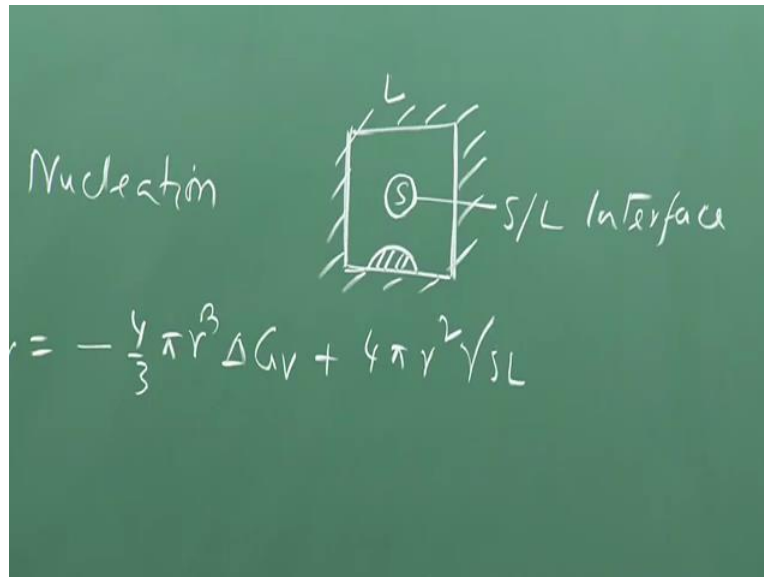 L
Nucleation
S
S/L Interface
= - 4/3 πr³ ΔGv + 4πr² γSL